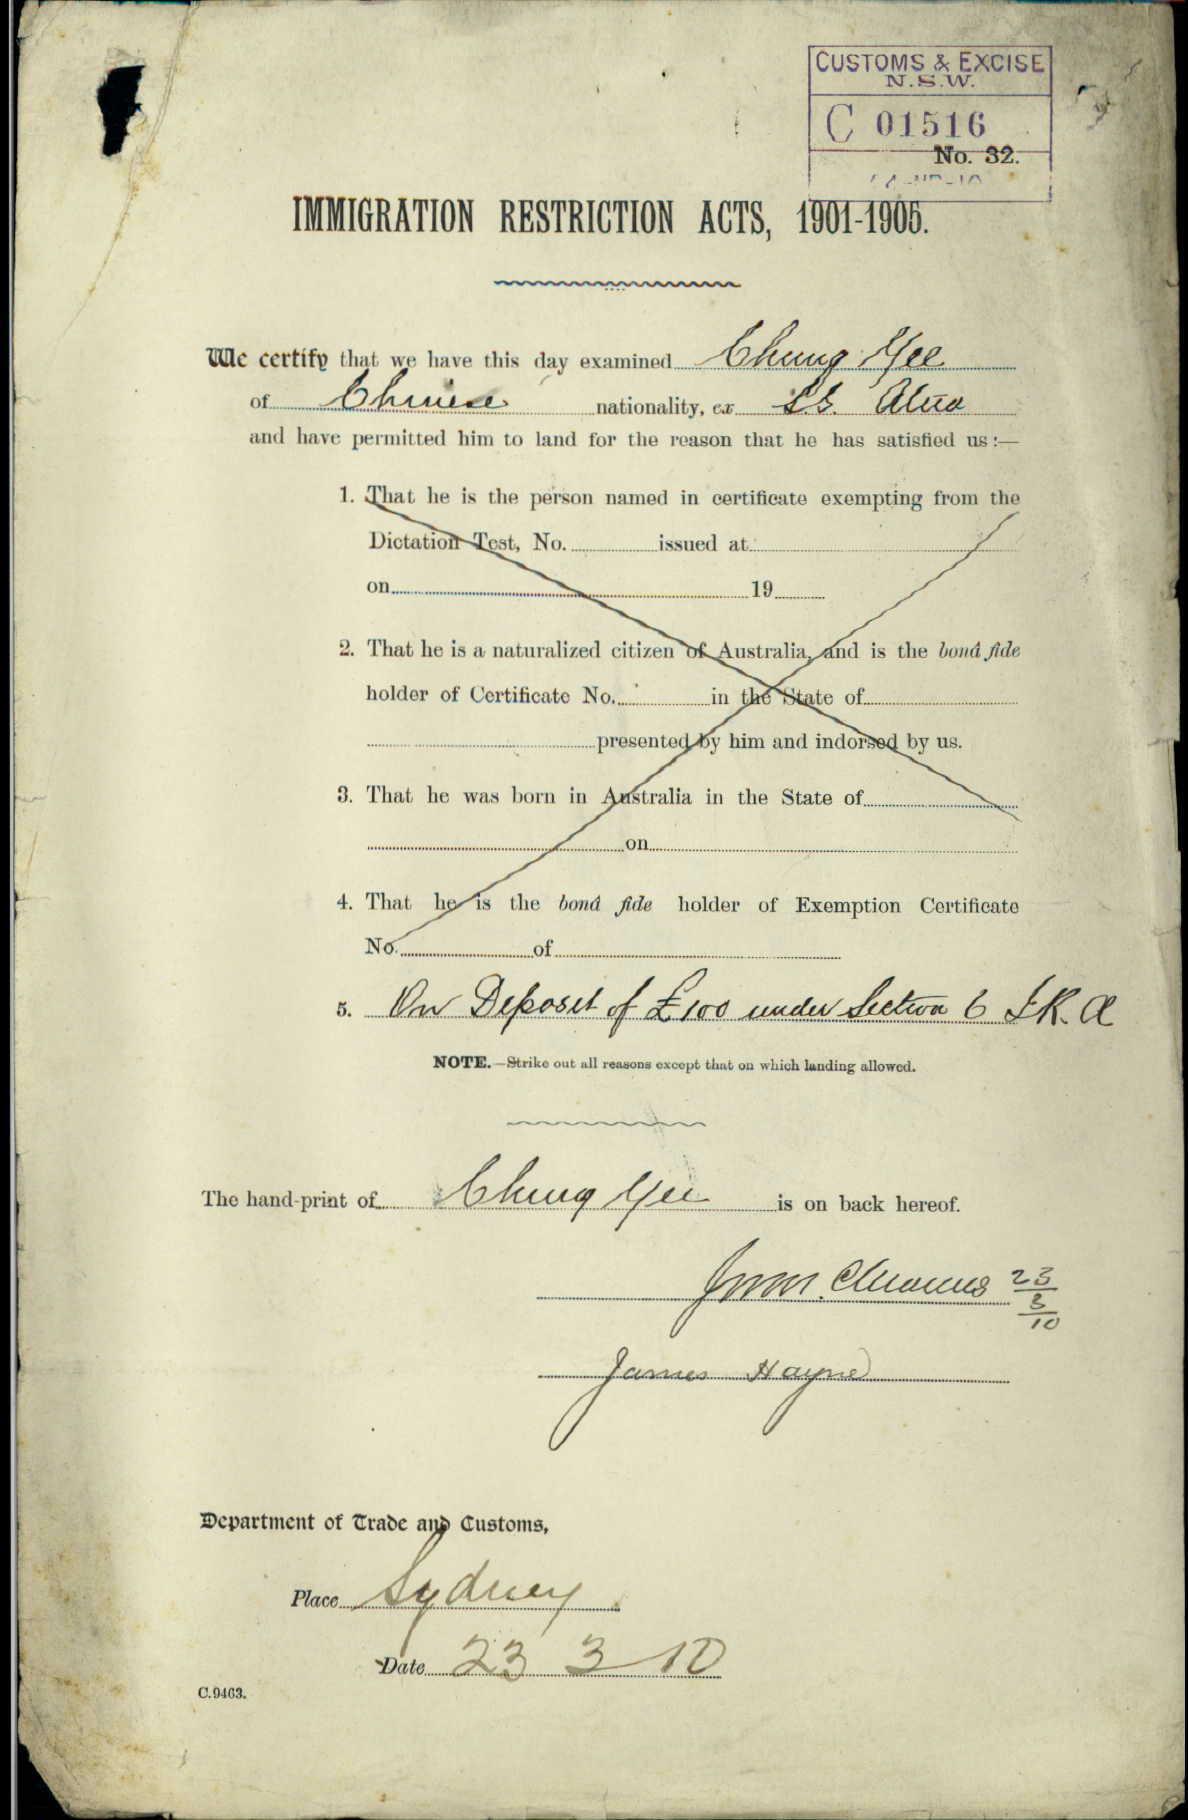 CUSTOMS & EXCISE
N.S.W.
C 01516
No. 32.
IMMIGRATION RESTRICTION ACTS, 1901-1905.
We certify that we have this day examined Chung Yee
of Chinese nationality, ex S.S. Aldenham
and have permitted him to land for the reason that he has satisfied us:—
1. That he is the person named in certificate exempting from the
Dictation Test, No. issued at
on 19
2. That he is a naturalized citizen of Australia, and is the bonâ fide
holder of Certificate No. in the State of
presented by him and indorsed by us.
3. That he was born in Australia in the State of
on
4. That he is the bonâ fide holder of Exemption Certificate
No. of
5. On Deposit of £100 under Section 6 I.R. A
NOTE.—Strike out all reasons except that on which landing allowed.
The hand-print of Chung Yee is on back hereof.
23
3
10
James Hayne
Department of Trade and Customs,
Place Sydney
Date 23 3 10
C.9463.